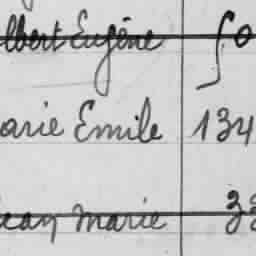 lbert Eugène 50
arie Emile 134
Jean Marie 33